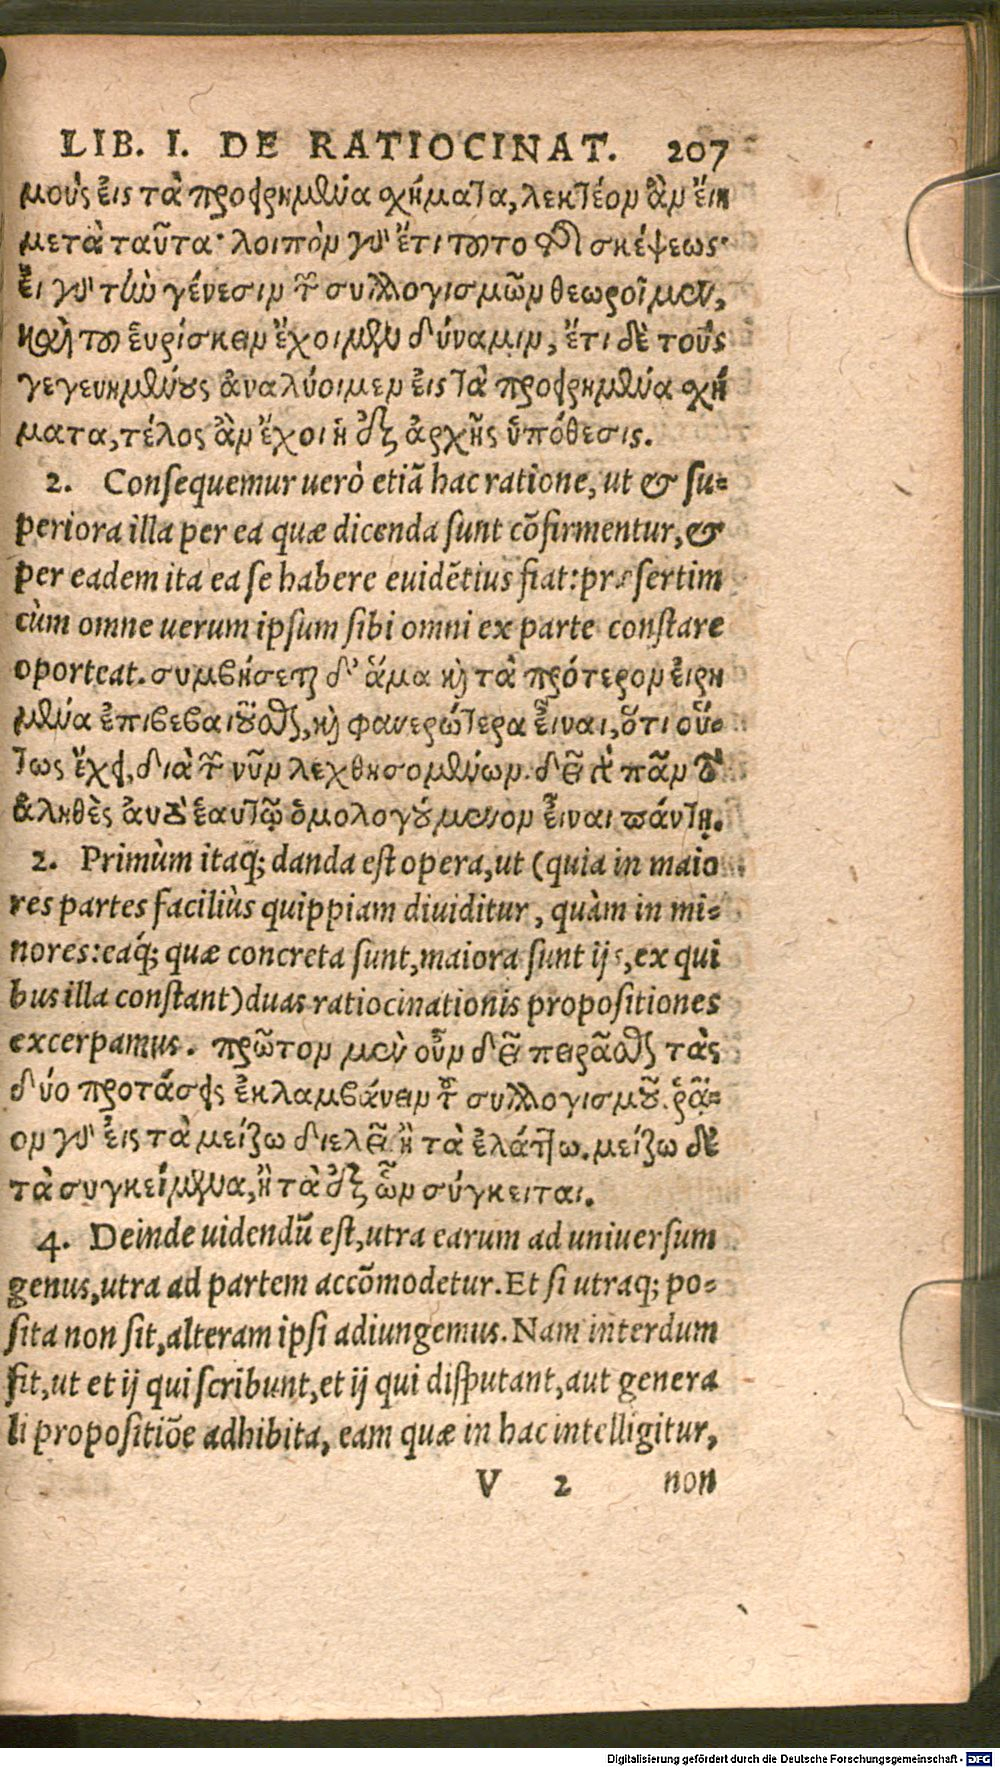 LIB. I. DE RATIOCINAT. 207
μοὺς εἰς τὰ προειρημένα σχήματα, λεκτέον ἂν εἴη
μετὰ ταῦτα· λοιπὸν γὰρ ἔτι τοῦτο τῆς σκέψεως·
εἰ γὰρ τὴν γένεσιν τῶν συλλογισμῶν θεωροῖμεν,
καὶ τοῦ εὑρίσκειν ἔχοιμεν δύναμιν, ἔτι δὲ τοὺς
γεγενημένους ἀναλύοιμεν εἰς τὰ προειρημένα σχή
ματα, τέλος ἂν ἔχοι ἡ ἐξ ἀρχῆς ὑπόθεσις.
2. Consequemur uerò etiã hac ratione, ut & su=
periora illa per ea quæ dicenda sunt cõfirmentur, &
per eadem ita ea se habere euidẽtius fiat: præsertim
cùm omne uerum ipsum sibi omni ex parte constare
oporteat. συμβήσεται δ' ἅμα καὶ τὰ πρότερον εἰρη
μένα ἐπιβεβαιοῦσθαι, καὶ φανερώτερα εἶναι, ὅτι οὕ=
τως ἔχει, διὰ τῶν νῦν λεχθησομένων. δεῖ γὰρ πᾶν τὸ
ἀληθὲς αὐτὸ ἑαυτῷ ὁμολογούμενον εἶναι πάντῃ.
2. Primùm itaq; danda est opera, ut (quia in maio
res partes faciliùs quippiam diuiditur, quàm in mi=
nores: eaq́; quæ concreta sunt, maiora sunt ijs, ex qui
bus illa constant) duas ratiocinationis propositiones
excerpamus. πρῶτον μὲν οὖν δεῖ πειρᾶσθαι τὰς
δύο προτάσεις ἐκλαμβάνειν τοῦ συλλογισμοῦ. ῥᾷ=
ον γὰρ εἰς τὰ μείζω διελεῖν ἢ τὰ ἐλάττω. μείζω δὲ
τὰ συγκείμενα, ἢ τὰ ἐξ ὧν σύγκειται.
4. Deinde uidendũ est, utra earum ad uniuersum
genus, utra ad partem accõmodetur. Et si utraq; po=
sita non sit, alteram ipsi adiungemus. Nam interdum
fit, ut et ij qui scribunt, et ij qui disputant, aut genera
li propositiõe adhibita, eam quæ in hac intelligitur,
V 2 non
Digitalisierung gefördert durch die Deutsche Forschungsgemeinschaft - DFG